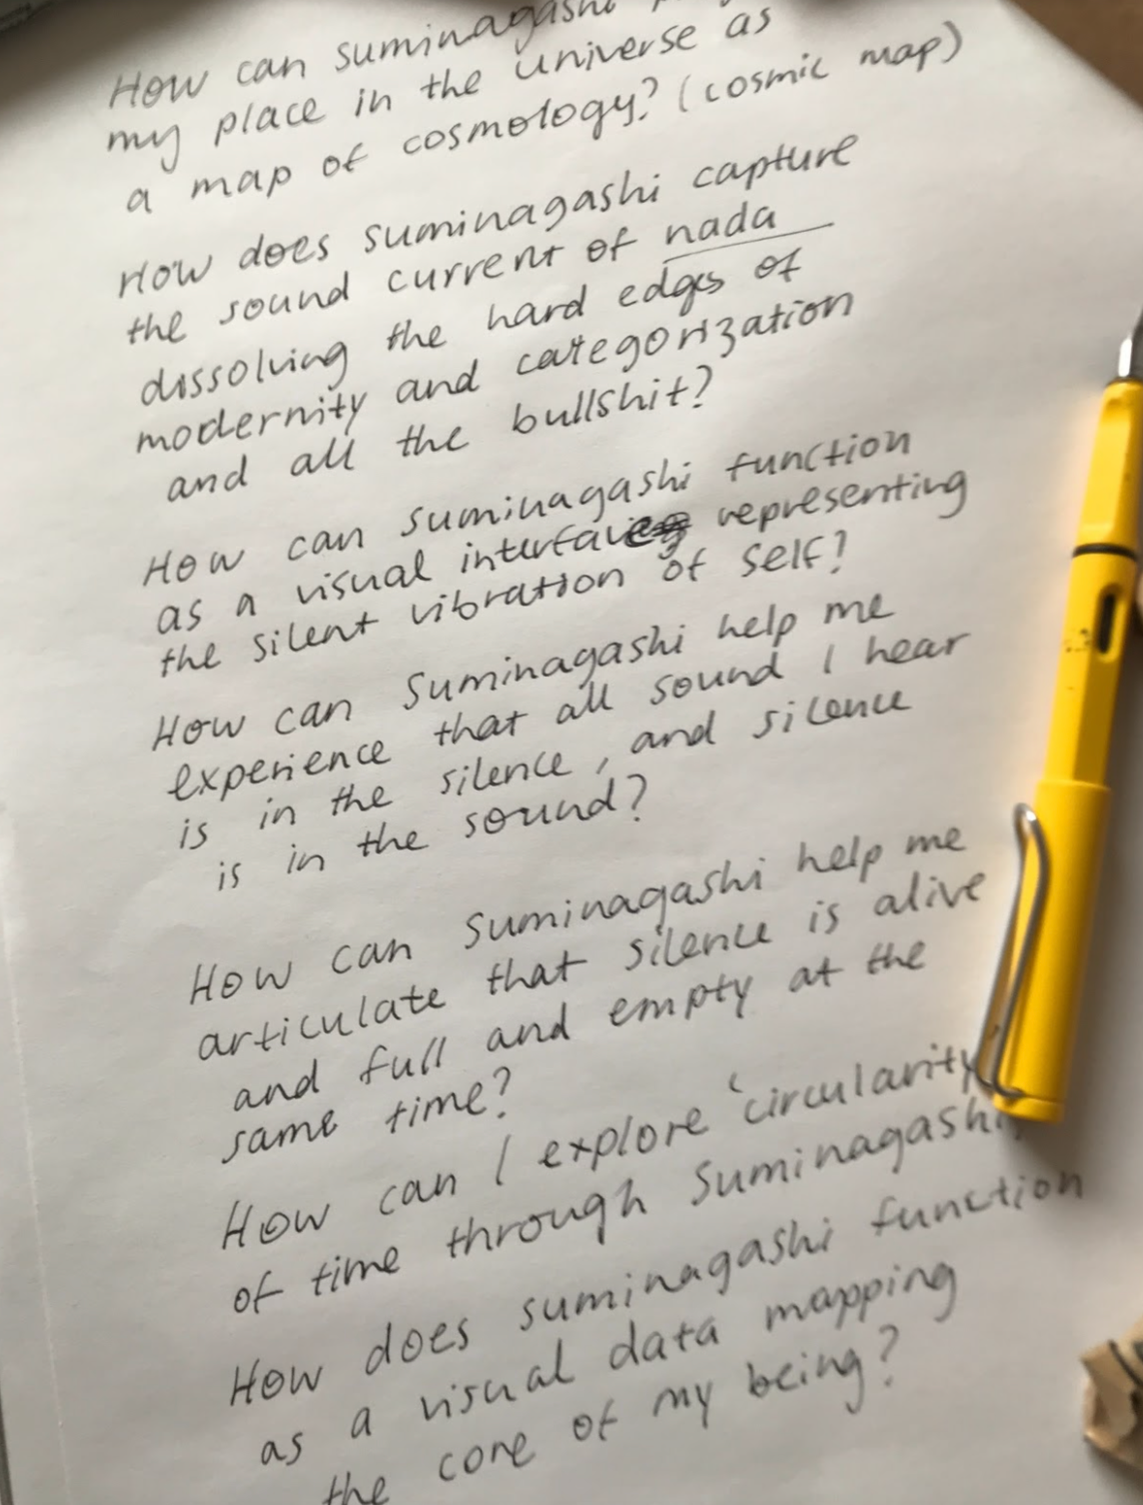 How can suminagashi
my place in the universe as
a map of cosmology? (cosmic map)
How does suminagashi capture
the sound current of nada
dissolving the hard edges of
modernity and categorization
and all the bullshit?
How can suminagashi function
as a visual interface representing
the silent vibration of self?
How can Suminagashi help me
experience that all sound I hear
is in the silence, and silence
is in the sound?
How can Suminagashi help me
articulate that silence is alive
and full and empty at the
same time?
How can I explore 'circularity
of time through Suminagashi
How does suminagashi function
as a visual data mapping
the core of my being?